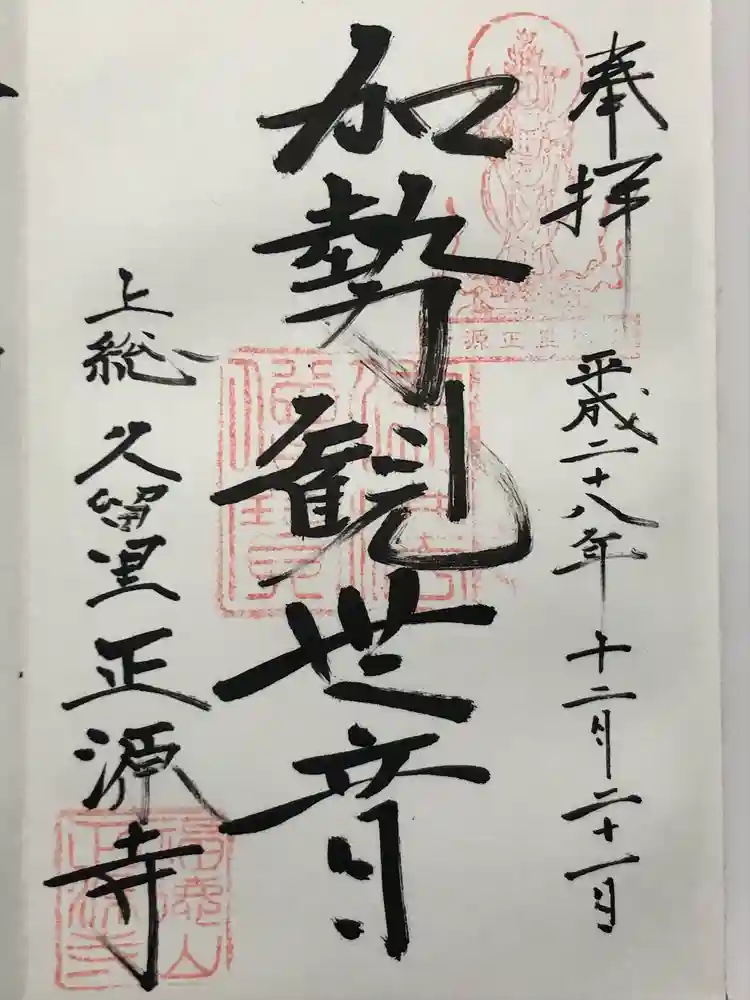 奉拝
平成二十八年十二月二十一日
加勢観世音
上総久留里正源寺
佛法僧寳